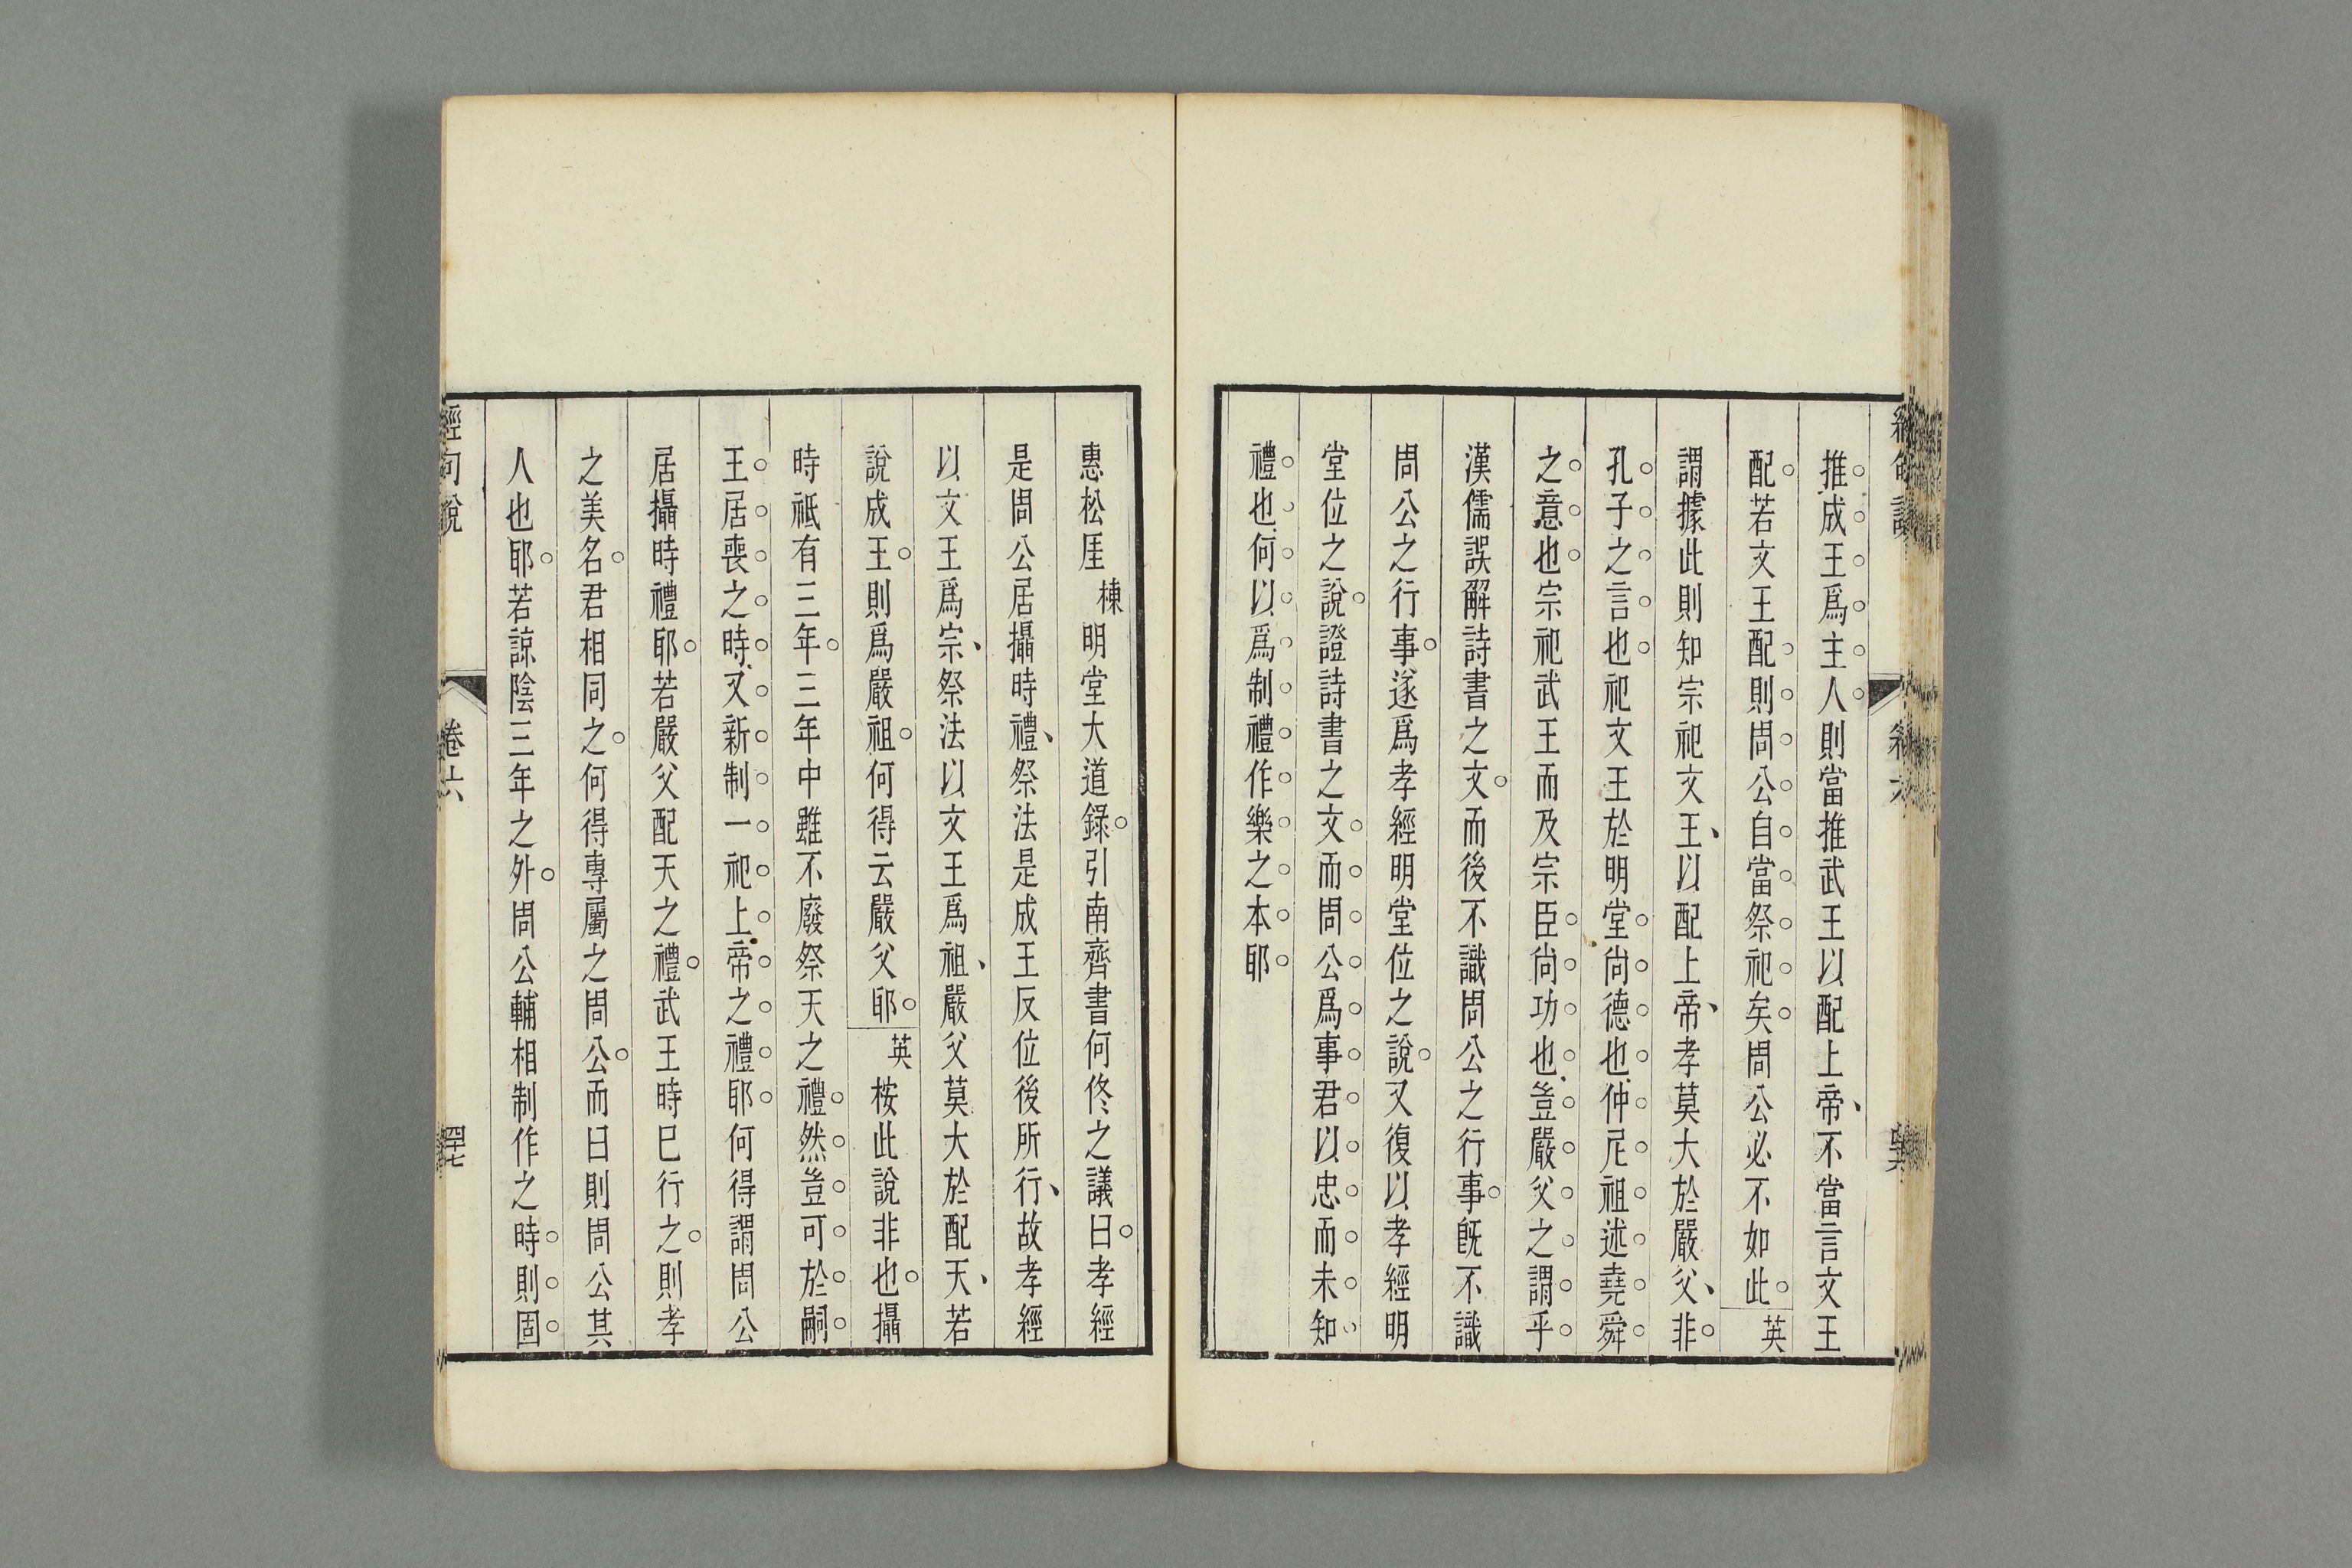 推成王爲主人則當推武王以配上帝、不當言文王
配若文王配則周公自當祭祀矣周公必不如此英
謂據此則知宗祀文王、以配上帝、孝莫大於嚴父、非
孔子之言也祀文王於明堂尙德也仲尼祖述堯舜
之意也宗祀武王而及宗臣尙功也豈嚴父之謂乎
漢儒誤解詩書之文而後不識周公之行事旣不識
周公之行事遂爲孝經明堂位之說又復以孝經明
堂位之說證詩書之文而周公爲事君以忠而未知
禮也何以爲制禮作樂之本耶
惠松厓棟明堂大道錄引南齊書何佟之議曰孝經
是周公居攝時禮、祭法是成王反位後所行、故孝經
以文王爲宗、祭法以文王爲祖、嚴父莫大於配天、若
說成王則爲嚴祖何得云嚴父耶英桉此說非也攝
時祗有三年三年中雖不廢祭天之禮然豈可於嗣
王居喪之時又新制一祀上帝之禮耶何得謂周公
居攝時禮耶若嚴父配天之禮武王時巳行之則孝
之美名君相同之何得專屬之周公而曰則周公其
人也耶若諒陰三年之外周公輔相制作之時則固
經句說 卷六 四十七